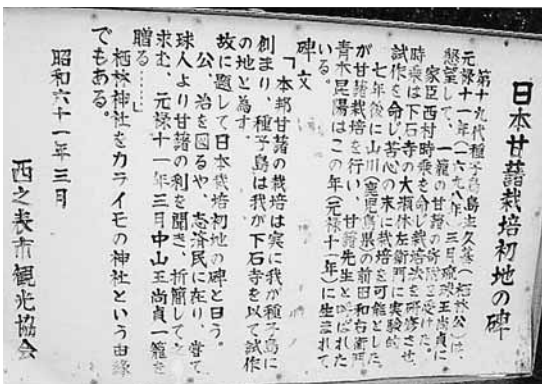 日本甘藷栽培初地の碑
第十九代種子島島主久基(栖林公)は、
元禄十一年(一六九八年)三月琉球王尚貞に
懇望して、一籠の甘藷の寄贈を受けた。
家臣西村時乗を命じ栽培法を研修させ
時乗は下石寺の大瀬休左衛門に実験的
試作を命じ苦心の末に栽培を可能とした。
七年後に山川(鹿児島県の前田利右衛門
が甘藷栽培を行い、甘藷先生と呼ばれた
青木昆陽はこの年(元禄十一年)に生まれて
いる。
碑文
「本邦甘藷の栽培は実に我が種子島に
創まり、種子島は我が下石寺を以て試作
の地と為す。
故に題して日本栽培初地の碑と曰う。
公、治を図るや、志済民に在り、嘗て
球人より甘藷の利を聞き、折簡して之を
求む、元禄十一年三月中山王尚貞一籠を
贈る……」
栖林神社をカライモの神社という由縁
でもある。
昭和六十一年三月
西之表市観光協会